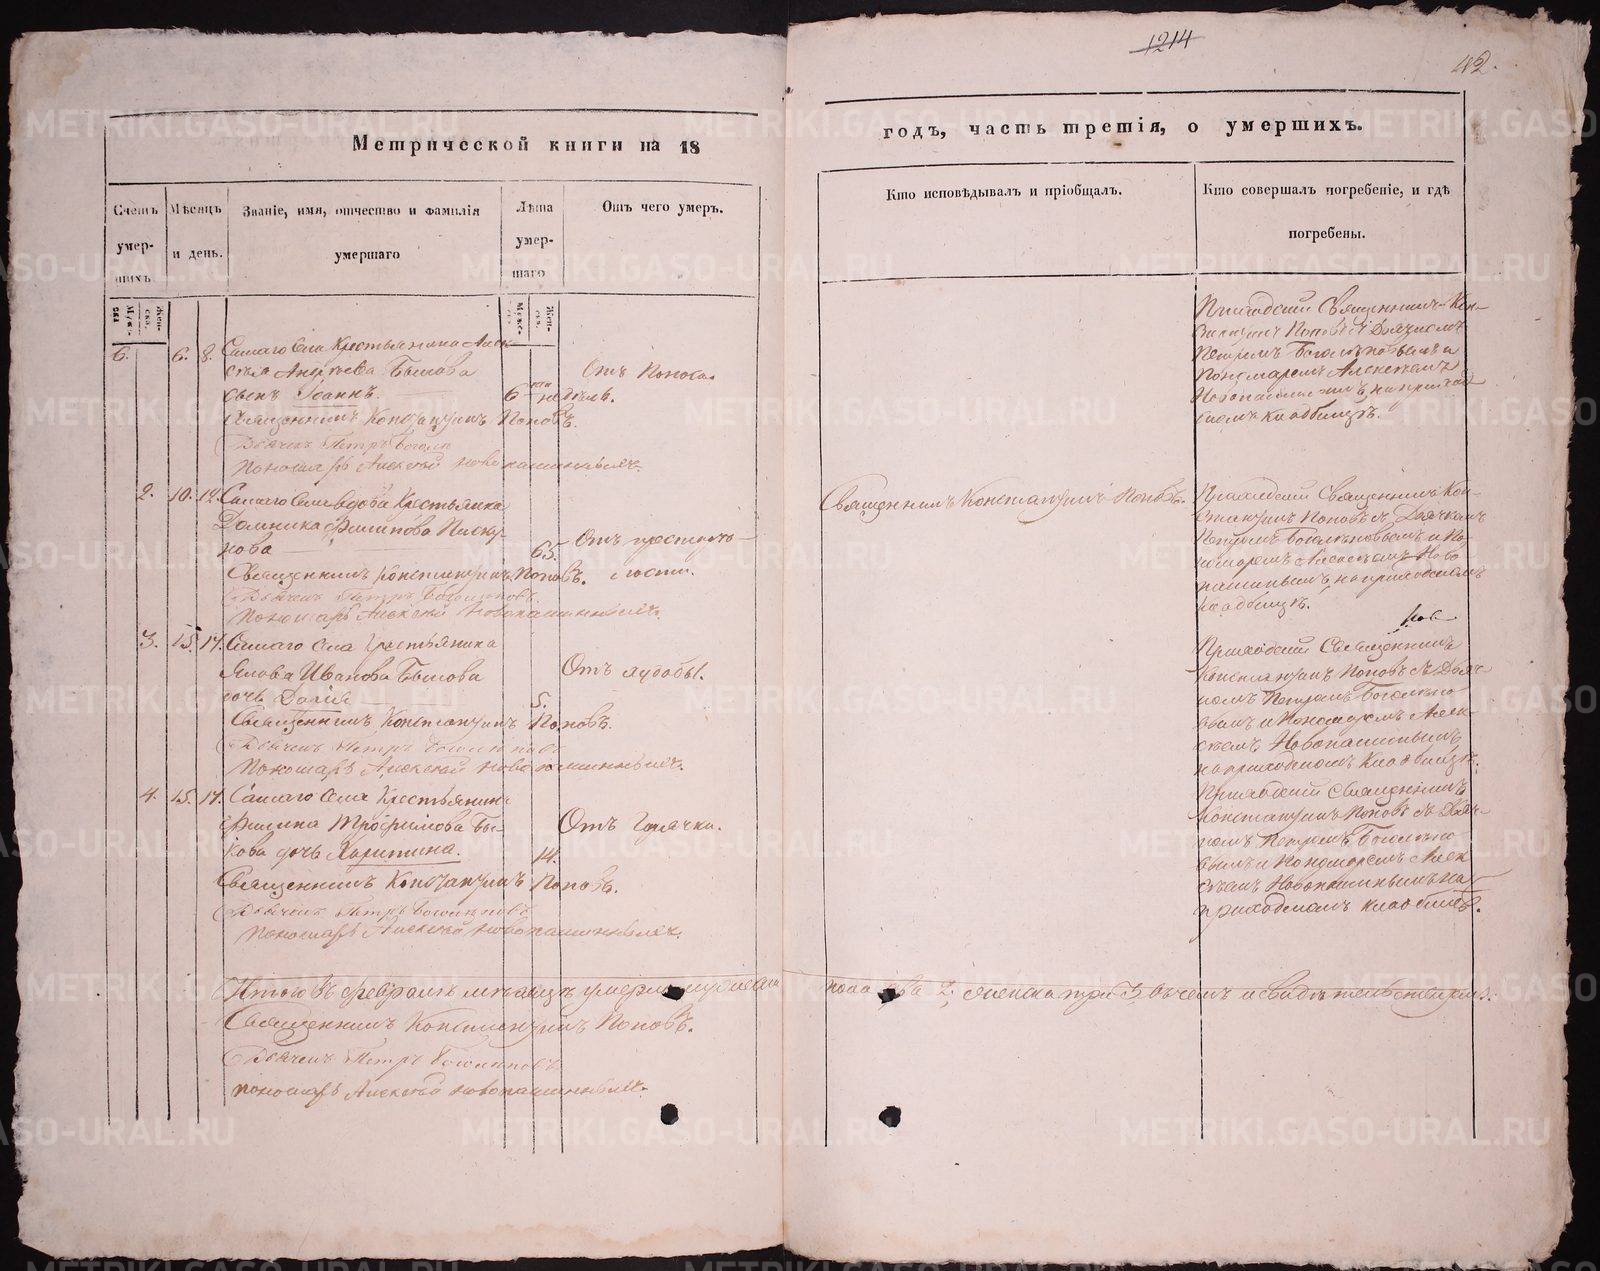 1214
42.
Метрической книги на 18
годъ, часть третія, о умершихъ.
Счетъ умер-шихъ.
Мѣсяцъ и день.
Званіе, имя, отчество и фамилія умершаго
Лѣта умер-шаго
Отъ чего умеръ.
Кто исповѣдывалъ и пріобщалъ.
Кто совершалъ погребеніе, и гдѣ погребены.
6. 6. 8. Самаго Села Крестьянина Алек-
сѣя Андреева Быкова
сынъ Іоаннъ.
6 недѣль.
Отъ Поноса.
Священникъ Константинъ Поповъ.
Дьячекъ Петръ
Пономарь Алексѣй Новопашинныхъ.
Приходскій Священникъ Кон-
стантинъ Поповъ съ Дьячкомъ
Петромъ Боголѣповымъ и
Пономаремъ Алексѣемъ
на приход-
скомъ кладбищѣ.
2. 10. 12. Самаго Села вдова Крестьянка
Домника Филипова Писку-
нова
65.
Отъ престаре-
лости.
Священникъ Константинъ Поповъ.
Дьячекъ Петръ Боголѣповъ.
Пономарь Алексѣй Новопашинныхъ.
Священникъ Константинъ Поповъ.
Приходскій Священникъ Кон-
стантинъ Поповъ съ Дьячкомъ
Петромъ Боголѣповымъ и По-
номаремъ Алексѣемъ Ново-
на приходскомъ
кладбищѣ.
3. 15. 17. Самаго Села Крестьянина
Якова Иванова Быкова
дочь Дарія
5.
Отъ худобы.
Священникъ Константинъ Поповъ.
Дьячекъ Петръ Боголѣповъ
Пономарь Алексѣй Новопашинныхъ.
Приходскій Священникъ
Константинъ Поповъ съ Дьяч-
комъ Петромъ Боголѣпо-
вымъ и Пономаремъ Алек-
сѣемъ Новопашинымъ
на приходскомъ Кладбищѣ.
4. 15. 17. Самаго Села Крестьянина
Филипа Трофимова Бы-
кова дочь Харитина.
14.
Отъ Горячки.
Священникъ Константинъ Поповъ.
Дьячекъ Петръ Боголѣповъ
Пономарь Алексѣй Новопашинныхъ.
Приходскій Священникъ
Константинъ Поповъ съ Дьяч-
комъ Петромъ Боголѣпо-
вымъ и Пономаремъ Алек-
сѣемъ Новопашинымъ на
приходскомъ кладбищѣ.
Итого въ февралѣ мѣсяцѣ умерло мужеска пола два 2, женска три 3, въ чемъ и свидѣтельствуемъ.
Священникъ Константинъ Поповъ.
Дьячекъ Петръ Боголѣповъ
Пономарь Алексѣй Новопашинныхъ.
METRIKI.GASO-URAL.RU